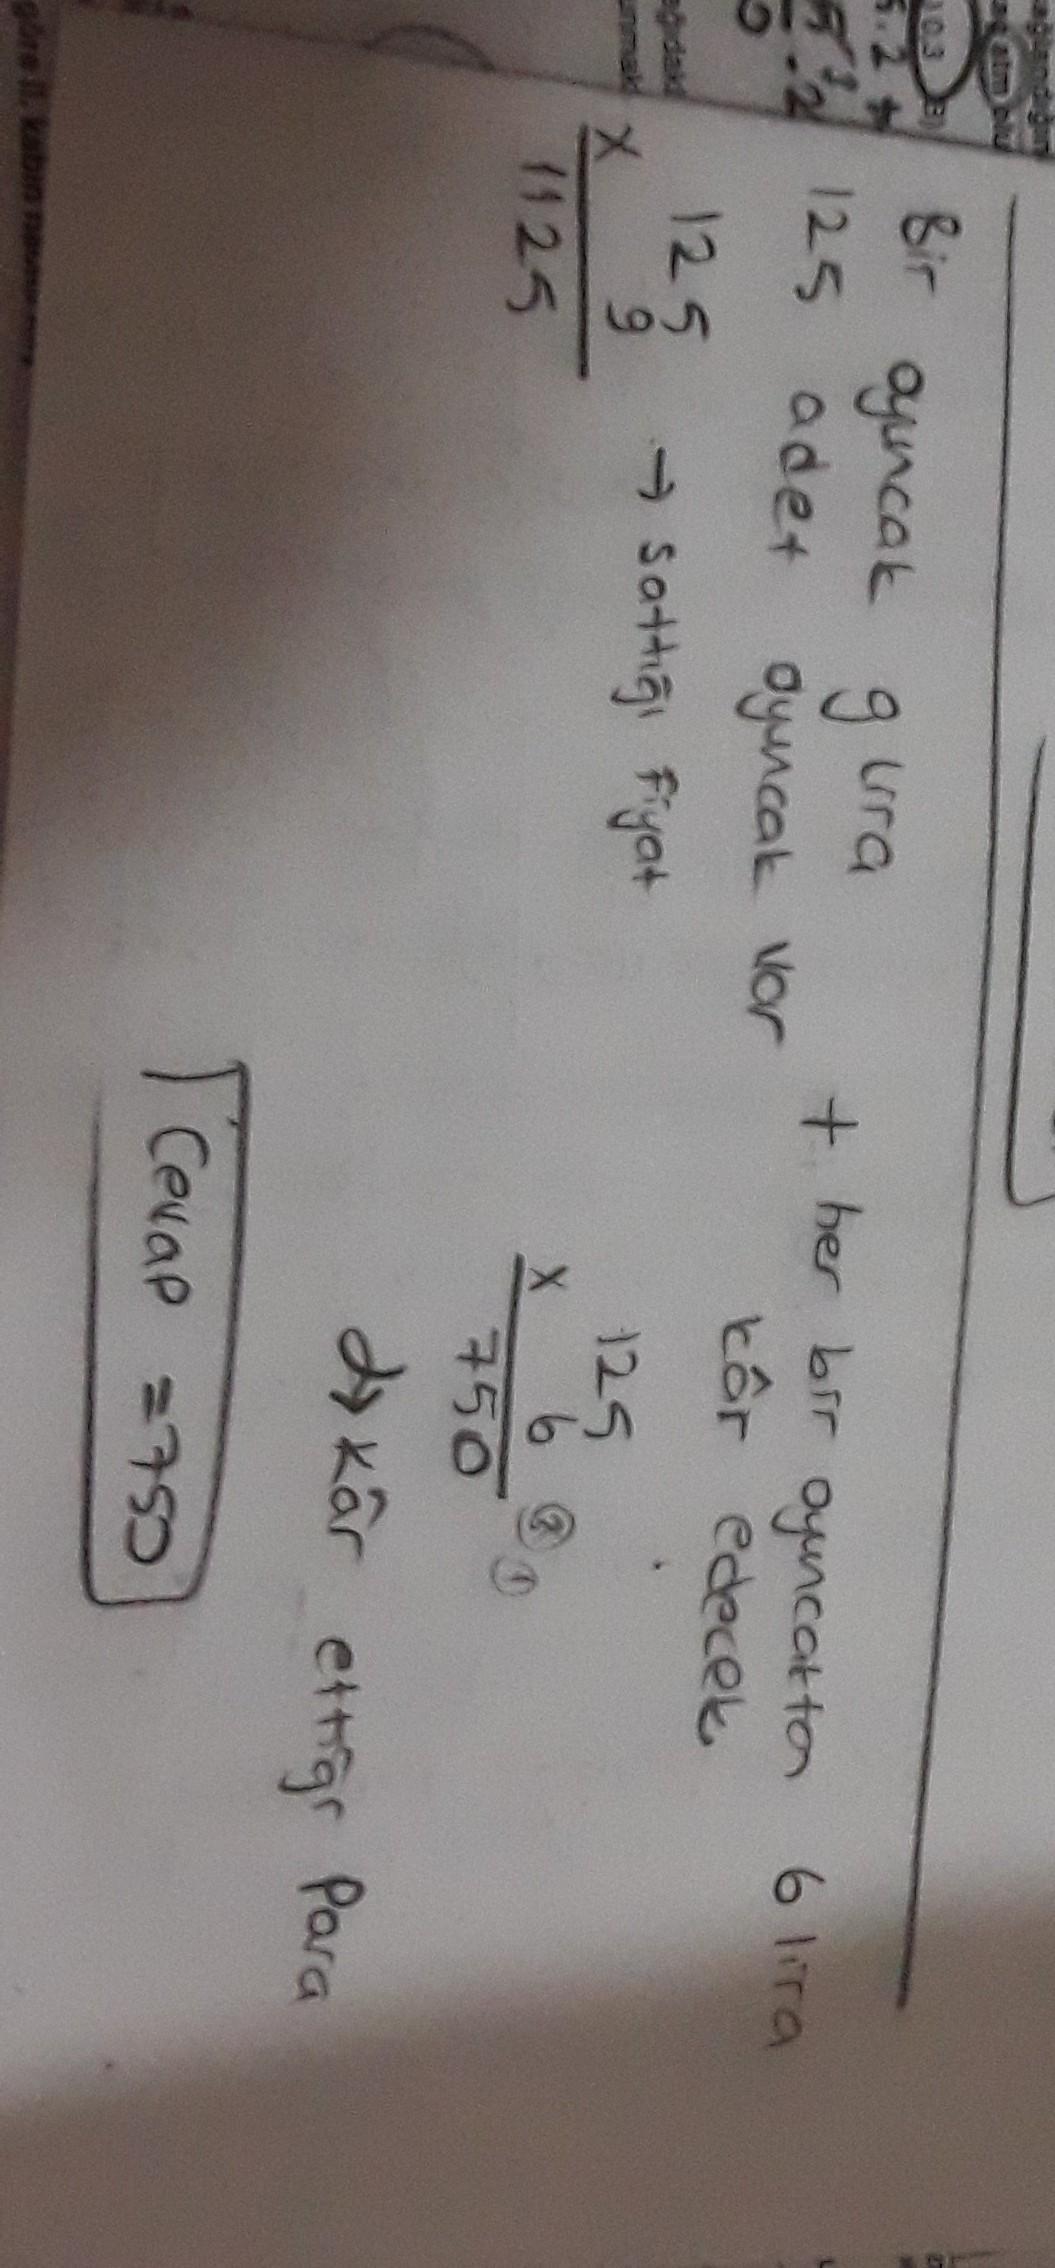 Bir oyuncak 9 lira
125 adet oyuncak var + her bir oyuncaktan 6 lira
kâr edecek
125
x 9 → sattığı fiyat
1125
125
x 6 ② ①
750
↳ kâr ettiği para
Cevap = 750